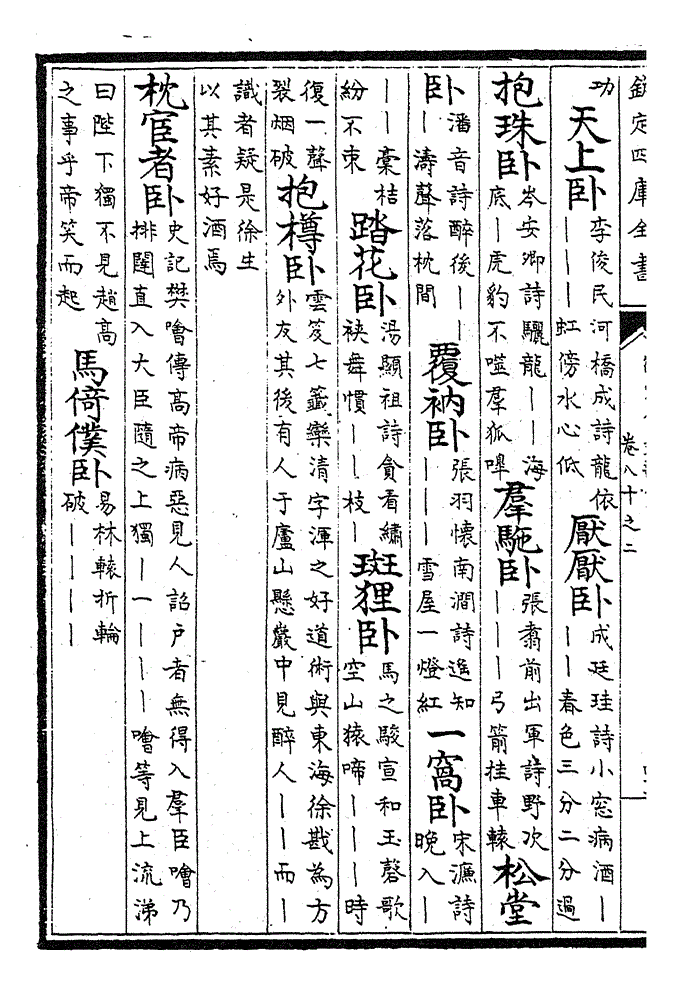 欽定四庫全書 卷八十之二
功 天上卧 李俊民河橋成詩龍依
｜｜｜虹傍水心低
厭厭卧 成廷珪詩小窓病酒｜
｜｜春色三分二分過
抱珠卧 岑安卿詩驪龍｜｜海
底｜虎豹不噬羣狐嘷
羣駞卧 張翥前出軍詩野次
｜｜｜弓箭挂車轅
松堂
卧 潘音詩醉後｜｜
｜濤聲落枕間
覆衲卧 張羽懷南澗詩遥知
｜｜｜雪屋一燈紅
一窩卧 宋濂詩
晚入｜
｜｜槀桔
紛不束
踏花卧 湯顯祖詩貪看繡
袂舞慣｜｜枝｜
斑狸卧 馬之駿宣和玉磬歌
空山猿啼｜｜｜時
復一聲
裂烟破
抱樽卧 雲笈七籤欒清字渾之好道術與東海徐戡為方
外友其後有人于廬山懸巖中見醉人｜｜而｜
識者疑是徐生
以其素好酒焉
枕宦者卧 史記樊噲傳高帝病惡見人詔户者無得入羣臣噲乃
排闥直入大臣隨之上獨｜一｜｜｜噲等見上流涕
曰陛下獨不見趙高
之事乎帝笑而起
馬倚僕卧 易林轅折輪
破｜｜｜｜